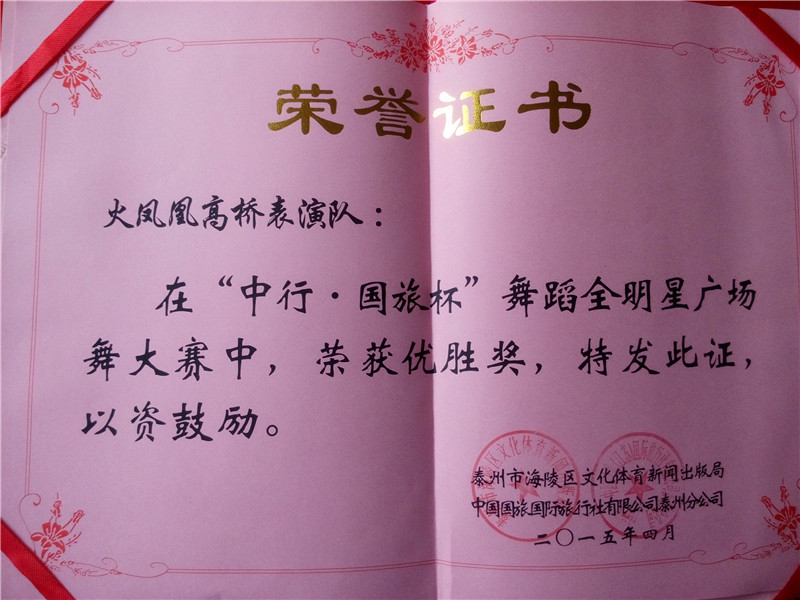 荣誉证书
火凤凰高桥表演队：
在“中行·国旅杯”舞蹈全明星广场
舞大赛中，荣获优胜奖，特发此证，
以资鼓励。
泰州市海陵区文化体育新闻出版局
中国国旅国际旅行社有限公司泰州分公司
二〇一五年四月